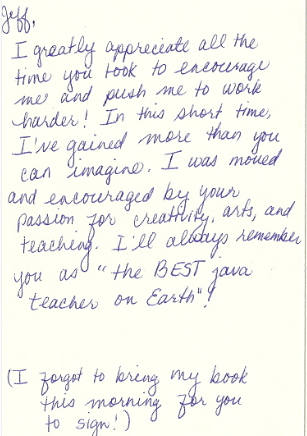 Jeff,
I greatly appreciate all the
time you took to encourage
me and push me to work
harder! In this short time,
I've gained more than you
can imagine. I was moved
and encouraged by your
passion for creativity, arts, and
teaching. I'll always remember
you as "the BEST java
teacher on Earth"!
(I forgot to bring my book
this morning for you
to sign!)